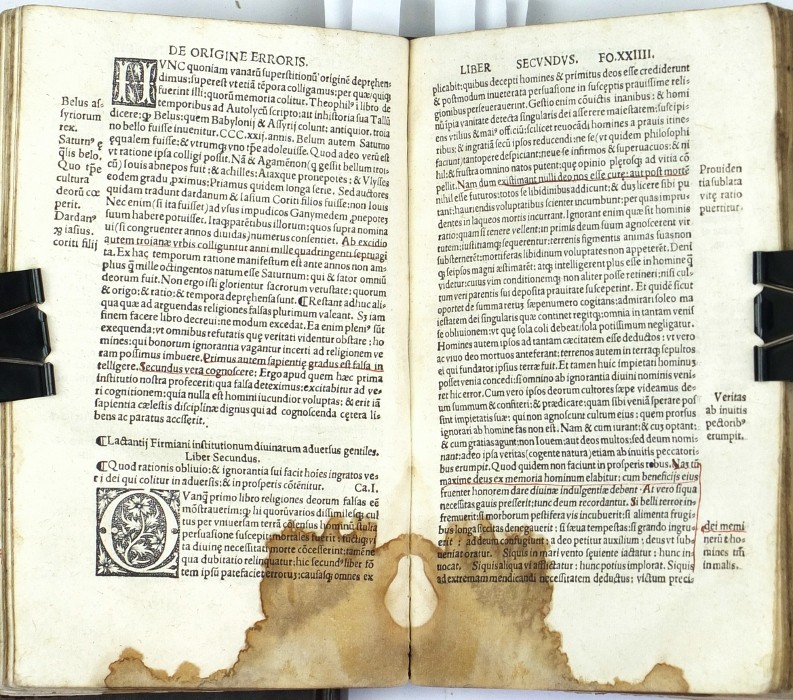 DE ORIGINE ERRORIS.
NVNC quoniam vanarū superstitionū originē deprehen-
dimus: superest vt etiā tēpora colligamus: per quæ
fuerint illi: quorū memoria colitur. Theophilꝰ ī libro de
temporibus ad Autolycū scripto: ait in historia sua Tallū
dicere: Belus: quem Babylonij & Assyrij colunt: antiquior. troia
no bello fuisse inuenitur. CCC.xxij. annis. Belum autem Saturno
equalem fuisse: & vtrumq vno tpē adoleuisse. Quod adeo verū est
vt ratione ipsa colligi possit. Nā & Agamēnō: q gessit bellum troia
cū) Iouis abnepos fuit: & achilles: Aiaxque pronepotes: & Vlysses
eodem gradu ꝓximus: Priamus quidem longa serie. Sed auctores
quidam tradunt dardanum & Iasium Coriti filios fuisse: non Iouis
Nec enim (si ita fuisset) ad vsus impudicos Ganymedem ꝓnepotē
suum habere potuisset. Itaq: paribus illorum: quos supra nomina
ui (si congruenter annos diuidas) numerus consentiet. Ab excidio
autem troianæ vrbis colliguntur anni mille quadringenti septuagi
ta. Ex hac temporum ratione manifestum est ante annos non am-
plius q̄ mille octingentos natum esse Saturnum: qui & sator omniū
deorum fuit. Non ergo isti glorientur sacrorum vetustate: quorum
& origo: & ratio: & tempora deprehensa sunt. ¶Restant adhuc ali-
qua quæ ad arguendas religiones falsas plurimum valeant. Sj iam
finem facere libro decreui: ne modum excedat. Ea enim pleniꝰ sūt
exequenda: vt omnibus refutatis quę veritati videntur obstare: ho
mines: qui bonorum ignorantia vagantur incerti ad religionem ve
ram possimus imbuere. Primus autem sapientię gradus est falsa in
telligere. Secundus vera cognoscere; Ergo apud quem hæc prima
institutio nostra profecerit: qua falsa deteximus: excitabitur ad ve-
ri cognitionem: quia nulla est homini iucundior voluptas; & erit iā
sapientia cælestis disciplinæ dignus qui ad cognoscenda cętera li-
bens ac paratus accisserit.
Belus as-
syriorum
rex.
Saturnꝰ ę
q̄lis belo.
Quo tp̄e
cultura
deorū cœ
perit.
Dardanꝰ
iasius.
coriti filij
¶Lactantij Firmiani institutionum diuinarum aduersus gentiles.
Liber Secundus.
¶Quod rationis obliuio: & ignorantia sui facit hoīes ingratos ve-
ri dei qui colitur in aduersis: & in prosperis cōtēnitur. Ca.I.
QVanq̄ primo libro religiones deorum falsas eē
mōstrauerim: lij quorū varios dissimilesq̨ cul
tus per vniuersam terrā consensus hominū stulta
persuasione suscepit mortales
ta diuinę necessitati morte cōcesserint: tamē ne
qua dubitatio relinquatur: hic secundꝰ liber fō
tem ipsū patefaciet errorū: causasq̨ omnes ex
LIBER SECVNDVS. FO.XXIIII.
plicabit: quibus decepti homines & primitus deos esse crediderunt
& postmodum inueterata persuasione in susceptis prauissime reli-
gionibus perseuerauerunt. Gestio enim cōuictis inanibus: & homi
nū īpia vanitate detecta singularis dei asserere maiestatem: suscipi-
ens vtilius & maiꝰ officiū: scilicet reuocādi homines a prauis itine-
ribus: & in gratiā secū ipsos reducendi: ne se (vt quidem philosophi
faciunt) tantopere despiciant: neue se infirmos & superuacuos: & ni
hil: & frustra omnino natos putent: que opinio plerosq; ad vitia cō
pellit. Nam dum existimant nulli deo nos esse curę: aut post mortē
nihil esse futuros: totos se libidinibus addicunt: & dū licere sibi pu
tant: hauriendis voluptatibus scienter incumbunt: per quas impru-
dentes in laqueos mortis incurrant. Ignorant enim quæ sit hominis
ratio: quam si tenere vellent: in primis deum suum agnoscerent vir
tutem: iustitiamq; sequerentur: terrenis figmentis animas suas non
substernerēt: mortiferas libidinum voluptates non appeterēt. Deni
q; seipsos magni æstimarēt: atq; intelligerent plus esse in homine q̄
videtur: cuius vim conditionemq; non aliter posse retineri: nisi cul-
tum veri parentis sui deposita prauitate susceperint. Et quidē sicut
oportet de summa rerum sæpenumero cogitans: admirari soleo ma
iestatem dei singularis quæ continet regitq; omnia in tantam venis
se obliuionem vt que sola coli debeat: sola potissimum negligatur.
Homines autem ipsos ad tantam cæcitatem esse deductos: vt vero
ac viuo deo mortuos anteferant: terrenos autem in terraq; sepultos
ei qui fundator ipsius terræ fuit. Et tamen huic impietati hominū
posset venia concedi: si omnino ab ignorantia diuini nominis veni-
ret hic error. Cum vero ipsos deorum cultores sæpe videamus de-
um summum & confiteri: & predicare: quam sibi veniā sperare pos
sint impietatis suæ: qui non agnoscunt cultum eius: quem prorsus
ignorari ab homine fas non est. Nam & cum iurant: & cus optant:
& cum gratias agunt: non Iouem: aut deos multos: sed deum nomi-
nant: adeo ipsa veritas (cogente natura) etiam ab inuitis peccatori-
bus erumpit. Quod quidem non faciunt in prosperis rebus. Nas tū
maxime deus ex memoria hominum elabitur: cum beneficijs eius
fruenter honorem dare diuinæ indulgentiæ debent. At vero siqua
necessitas gauis presserit: tunc deum recordantur. Si belli terror in-
fremuerit: si morborum pestifera vis incubuerit: si alimenta frugi-
bus longa siccitas denegauerit: si sæua tempestas: si grando ingru-
erit: ad deum confugiunt: a deo petitur auxilium: deus vt sub-
ueniat oratur. Siquis in mari vento sęuiente iactatur: hunc in-
uocat. Siquis aliqua vi afflictatur: hunc potius implorat. Siquis
ad extremam mendicandi necessitatem deductus: victum preci-
Prouiden
tia sublata
vitę ratio
puertitur.
Veritas
ab inuitis
pectoribꝰ
erumpit.
dei memi
nerūt ho-
mines tm̄
in malis.